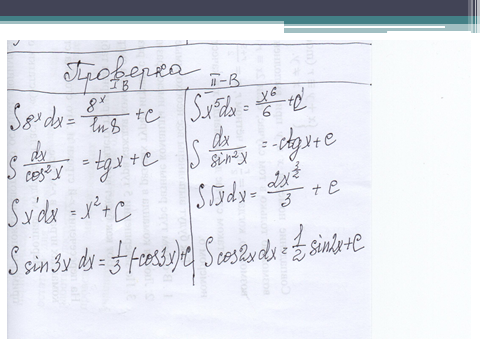 Проверка
I В
∫8ˣdx = 8ˣ/ln8 + c
∫dx/cos²x = tgx + c
∫x'dx = x² + C
∫sin3x dx = 1/3(-cos3x)+c
II-В
∫x⁵dx = x⁶/6 + C
∫dx/sin²x = -ctgx + c
∫√x dx = 2x^(3/2)/3 + c
∫cos2xdx = 1/2 sin2x + c